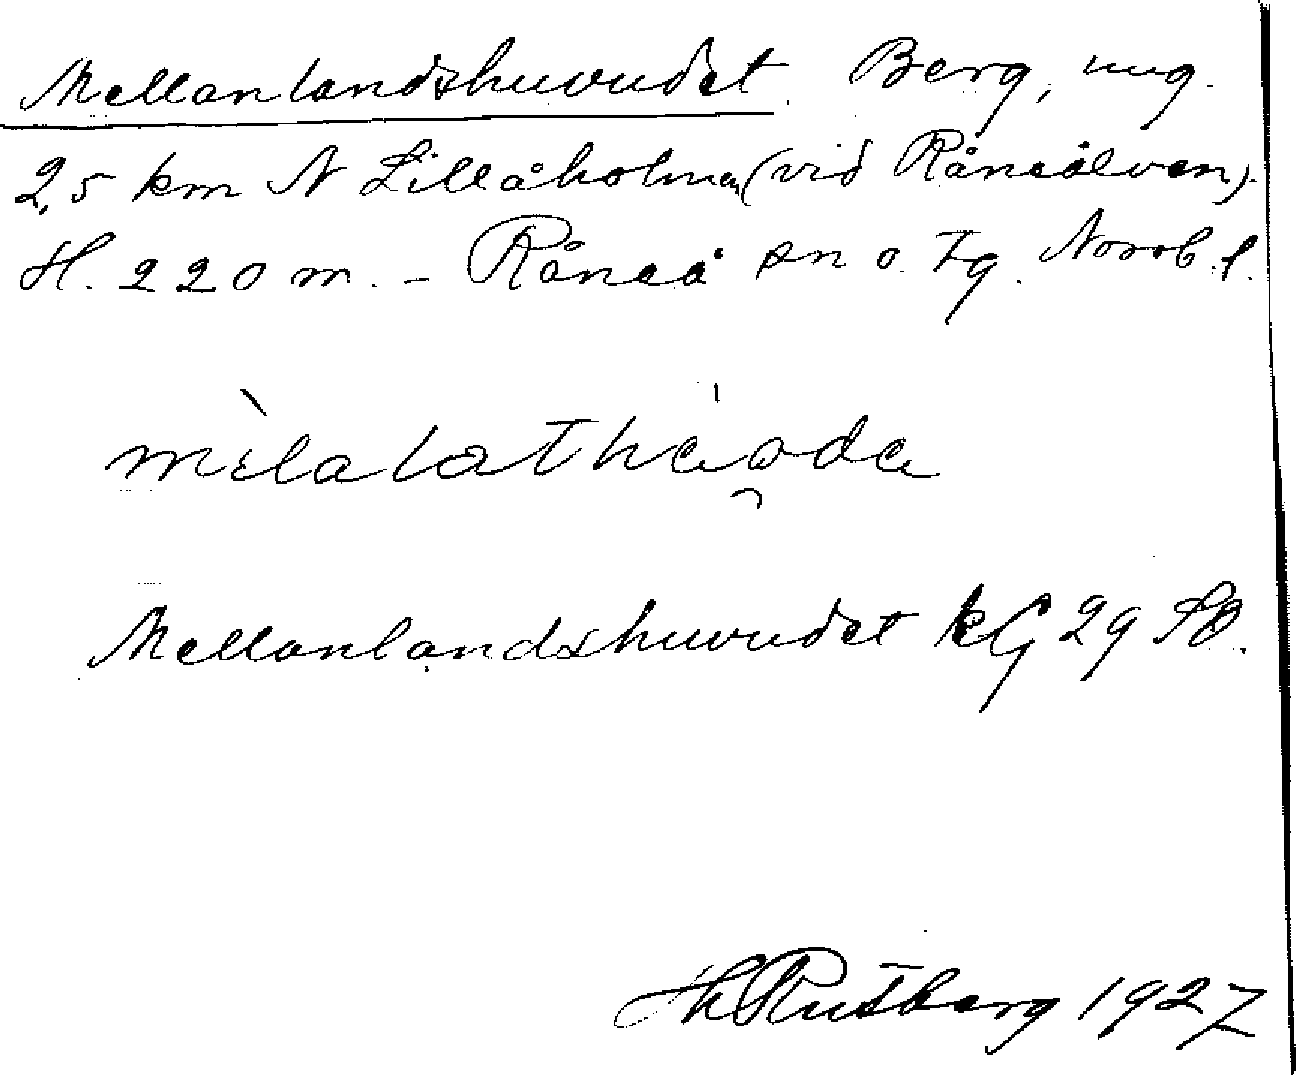 Mellanlandshuvudet. Berg, ung.
2,5 km N Lillåholmen (vid Råneälven).
H. 220 m. - Råneå sn o. tg. Norrb. l.
Mellanlandshuvudet kG 29 SO.
H Rutberg 1927